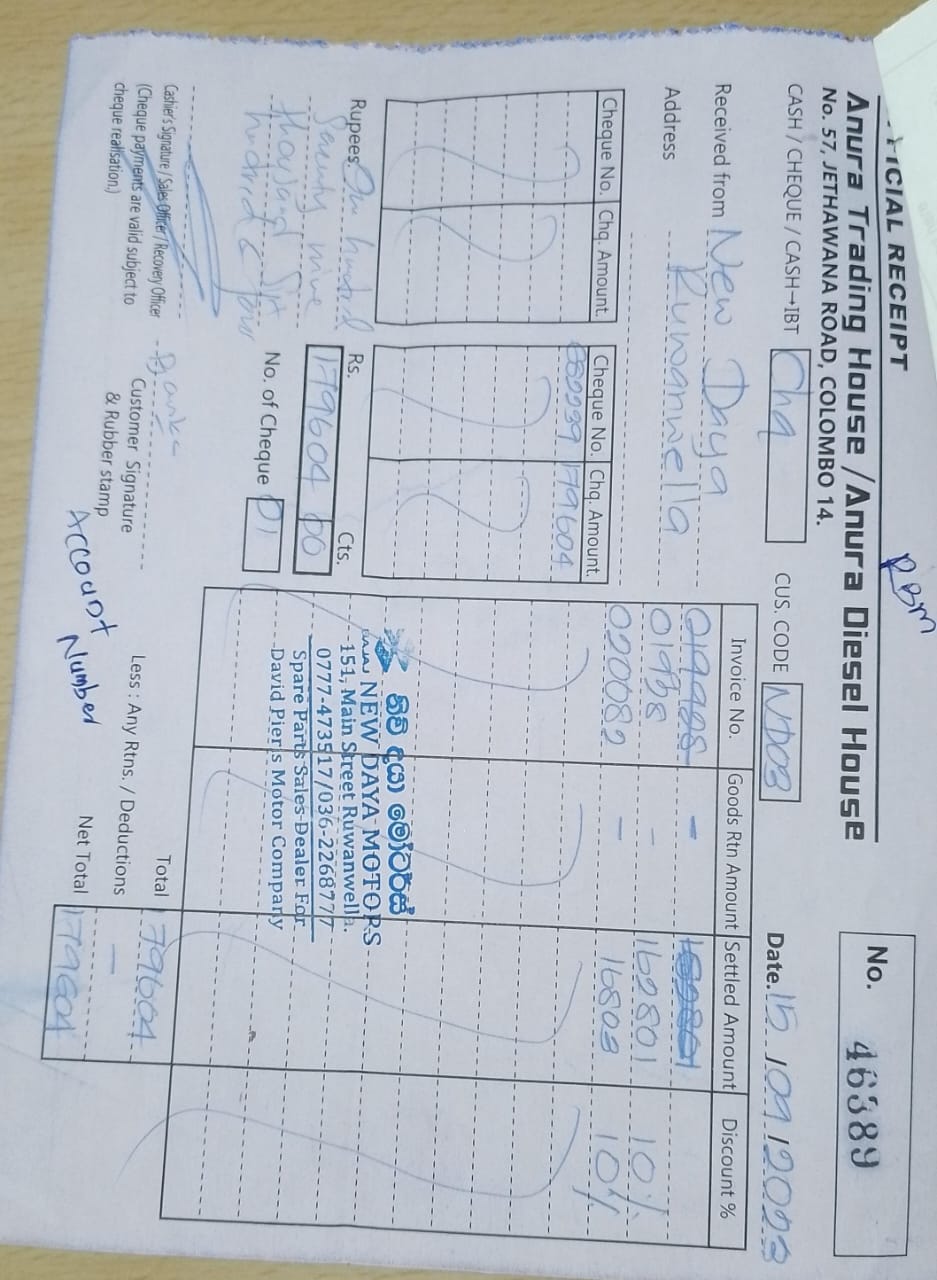 ICIAL RECEIPT
RBM
Anura Trading House / Anura Diesel House
No. 57, JETHAWANA ROAD, COLOMBO 14.
No. 46389
CASH / CHEQUE / CASH→IBT Chq
CUS. CODE ND03
Date. 15/09/2023
Received from New Daya
Address Ruwanwella
Cheque No. Chq. Amount. Cheque No. Chq. Amount.
179604
Invoice No. Goods Rtn Amount Settled Amount Discount %
-
- 162801 10%
020082 - 16803 10%
Rupees One hundred
Seventy nine
thousand Six
hundred & four
Rs. Cts.
179604 00
No. of Cheque 01
නිව් දයා මෝටර්ස්
NEW DAYA MOTORS
151, Main Street Ruwanwella.
0777-473517/036-2268777
Spare Parts Sales Dealer For
David Pieris Motor Company
Cashier's Signature / Sales Officer / Recovery Officer
(Cheque payments are valid subject to
cheque realisation.)
Customer Signature
& Rubber stamp
Account Number
Total 179604
Less : Any Rtns. / Deductions -
Net Total 179604